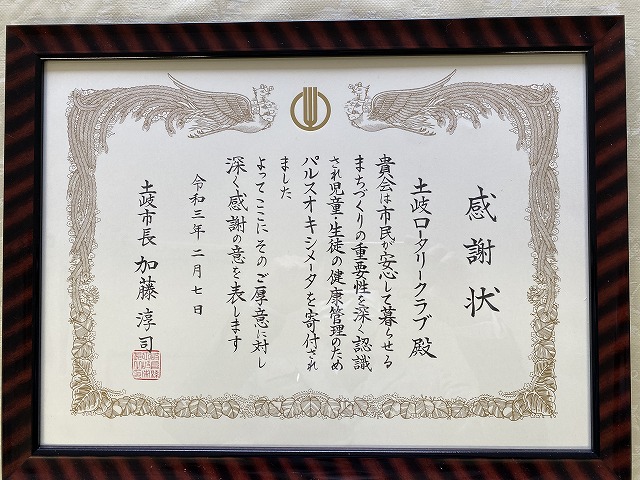 感謝状
土岐ロータリークラブ 殿
貴会は市民が安心して暮らせる
まちづくりの重要性を深く認識
され児童・生徒の健康管理のため
パルスオキシメータを寄付され
ました
よってここにそのご厚意に対し
深く感謝の意を表します
令和三年二月七日
土岐市長 加藤淳司